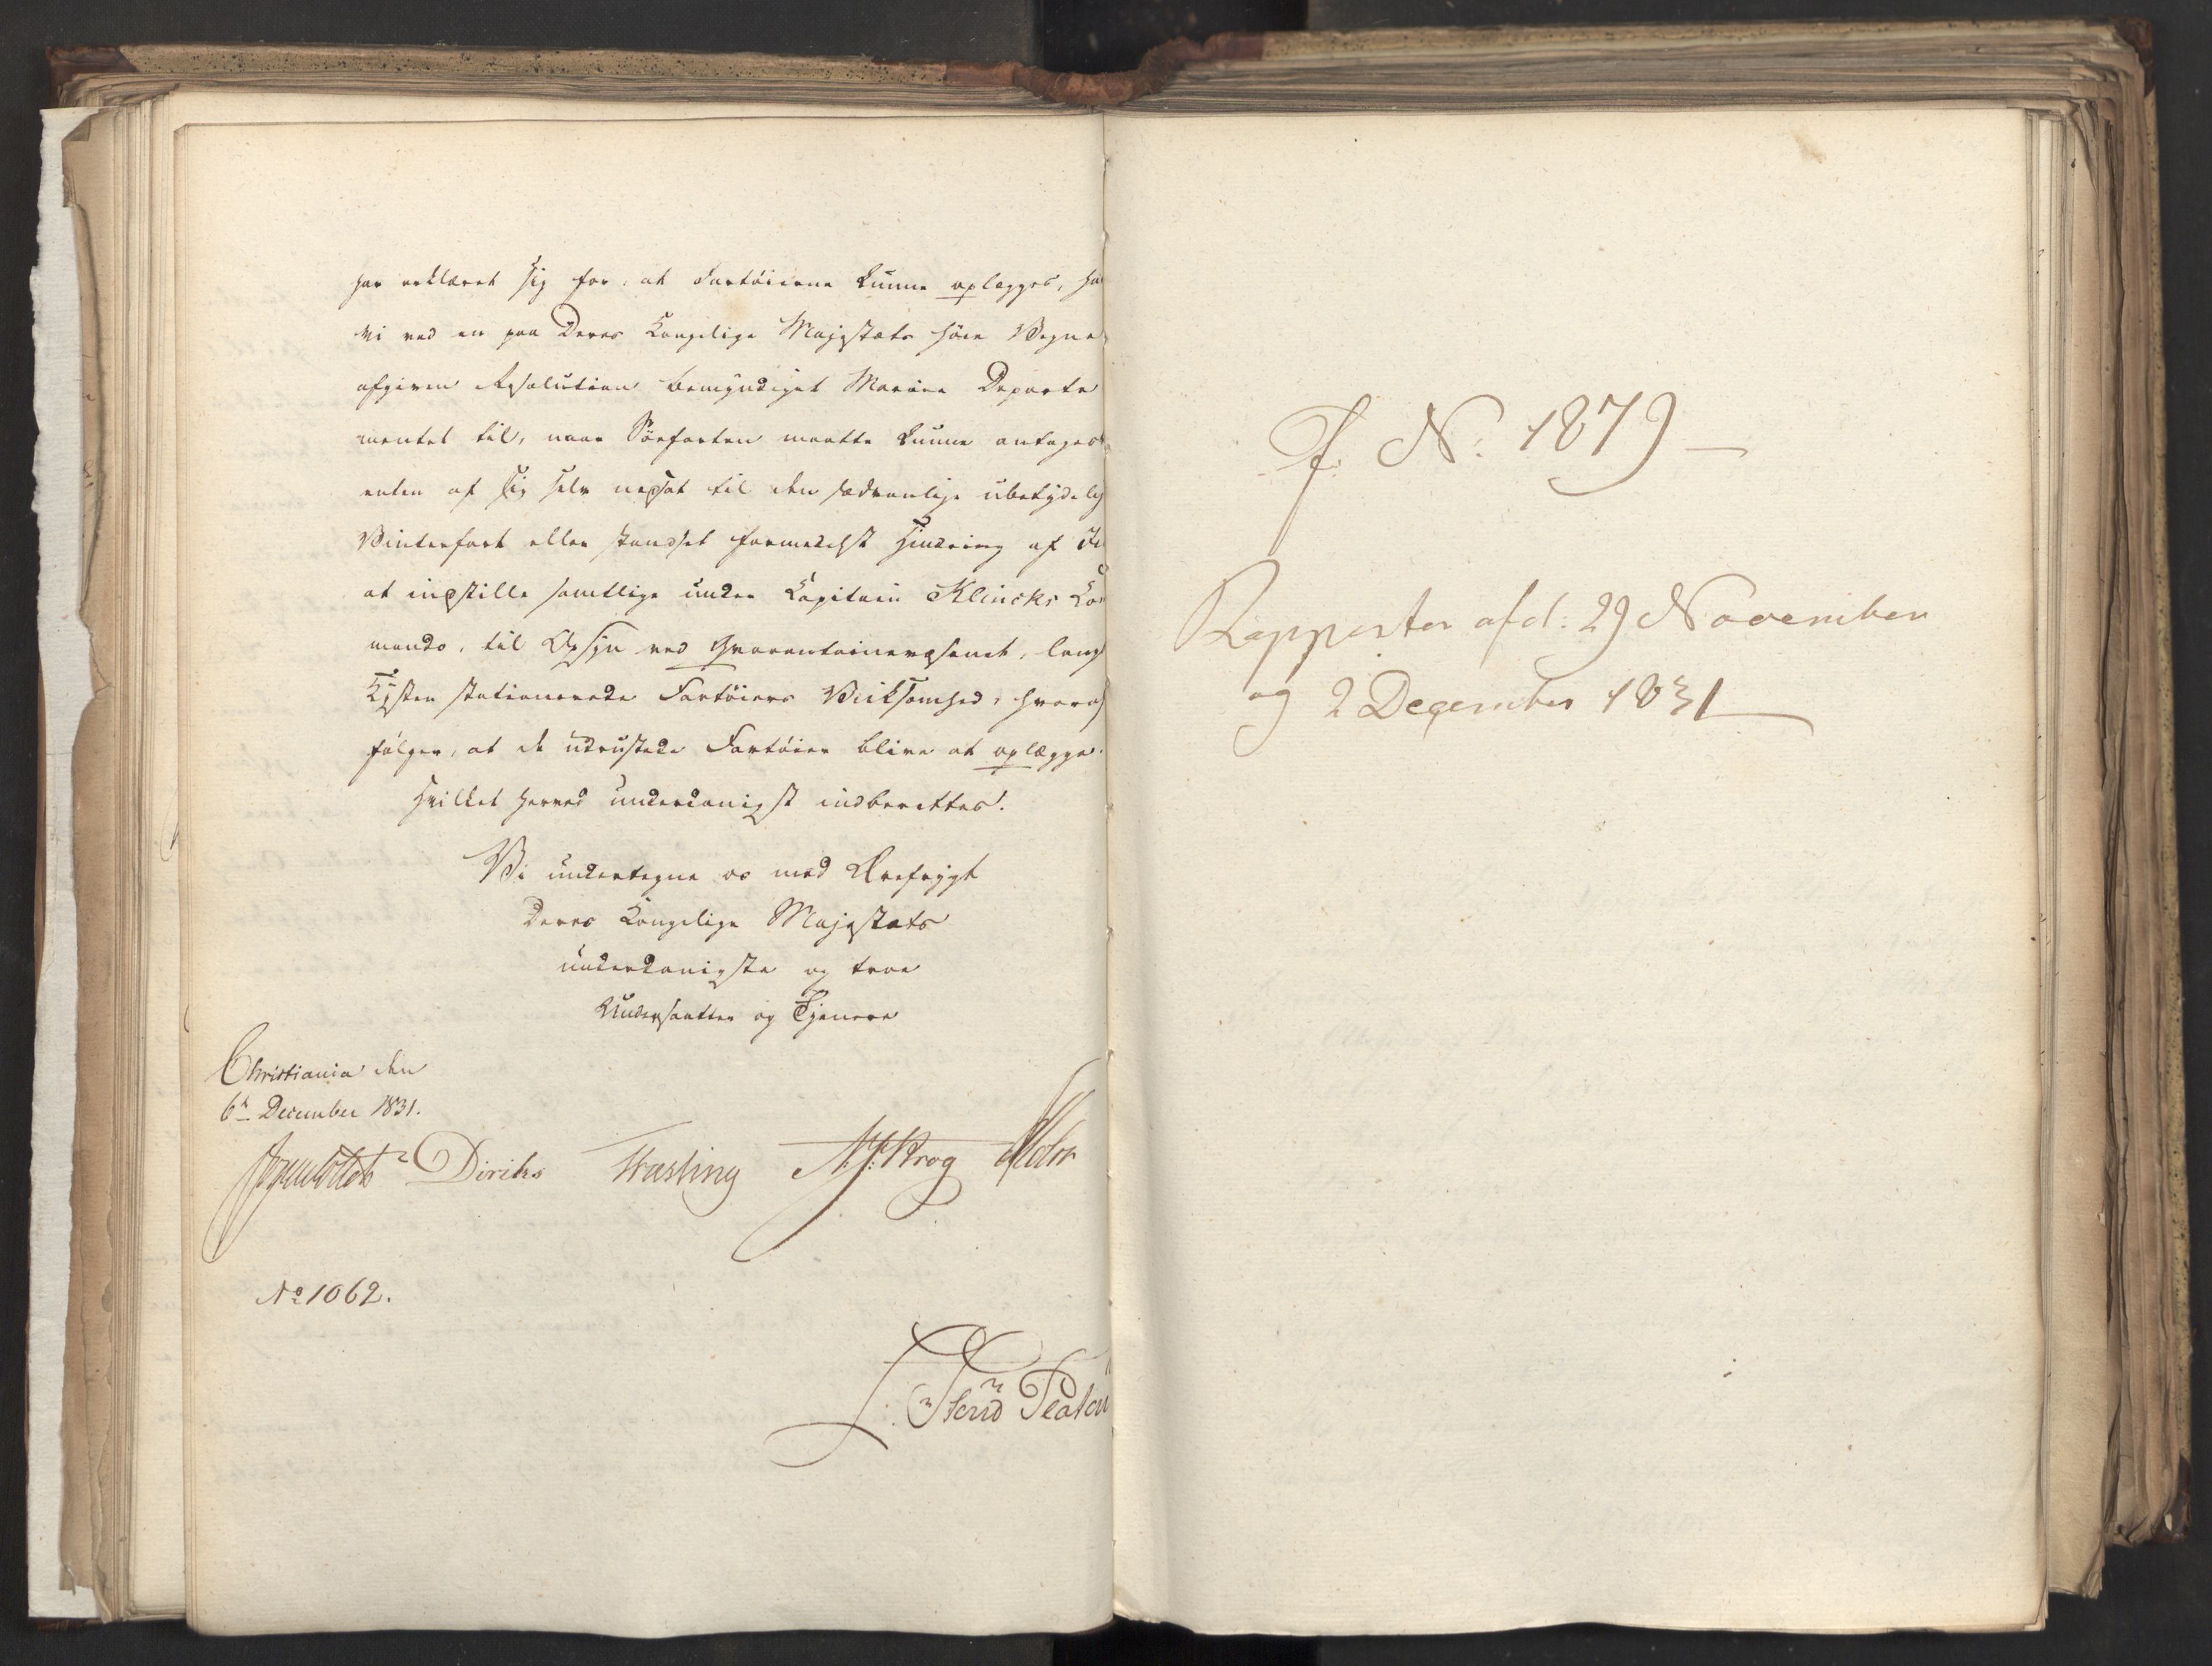 har erklæret sig for, at Fartøierne kunne oplægges, ha
vi ved en paa Deres Kongelige Majestæts høie Vegne
afgiven Resolution bemyndiget Marine Departe
mentet til, naar Søefarten maatte kunne antages
enten af sig selv nedsat til den sædvanlige ubetydelig
Vinterfart eller standset formedelst Hindring af Iis
at indstille samtlige under Kapitain Klincks Kom
mando, til Opsyn ved Qvarantainevæsenet, langs
Kysten stationerede Fartøiers Virksomhed, hvoraf
følger, at de udrustede Fartøier blive at oplægge.
Hvilket herved underdanigst indberettes.
Vi undertegne os med Ærefrygt
Deres Kongelige Majestæts
underdanigste og troe
Undersaatter og Tjenere
Christiania den
6te December 1831.
Diriks Fasting Krog Holst
No 1062.
J. No. 1879
Rapporter af d. 29 November
og 2 December 1831